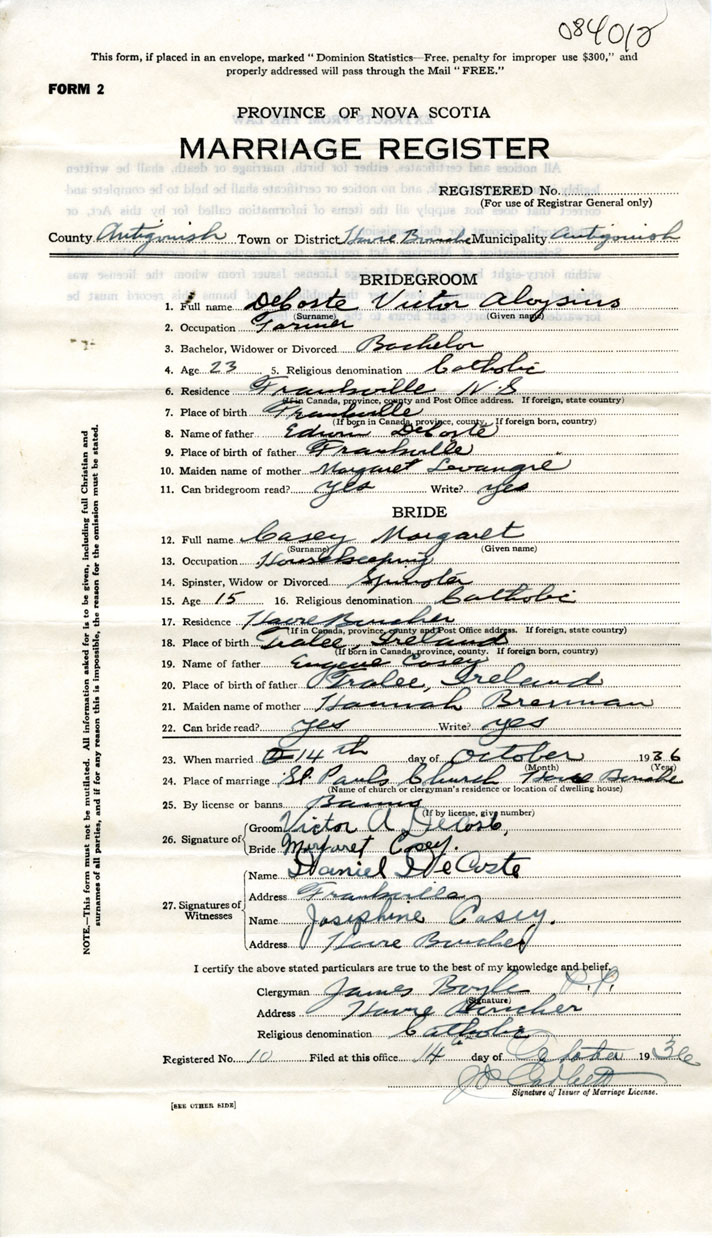 084012
This form, if placed in an envelope, marked "Dominion Statistics—Free, penalty for improper use $300," and
properly addressed will pass through the Mail "FREE."
FORM 2
PROVINCE OF NOVA SCOTIA
MARRIAGE REGISTER
REGISTERED No.
(For use of Registrar General only)
County Antigonish Town or District Havre Boucher Municipality Antigonish
BRIDEGROOM
1. Full name DeCoste Victor Aloysius
(Surname) (Given name)
2. Occupation Farmer
3. Bachelor, Widower or Divorced Bachelor
4. Age 23 5. Religious denomination Catholic
6. Residence Franksville N.S
(If in Canada, province, county and Post Office address. If foreign, state country)
7. Place of birth Franksville
(If born in Canada, province, county. If foreign born, country)
8. Name of father Edwin DeCoste
9. Place of birth of father Franksville
10. Maiden name of mother Margaret Levangie
11. Can bridegroom read? yes Write? yes
BRIDE
12. Full name Casey Margaret
(Surname) (Given name)
13. Occupation Housekeeping
14. Spinster, Widow or Divorced Spinster
15. Age 15 16. Religious denomination Catholic
17. Residence Havre Boucher
(If in Canada, province, county and Post Office address. If foreign, state country)
18. Place of birth Tralee, Ireland
(If born in Canada, province, county. If foreign born, country)
19. Name of father Eugene Casey
20. Place of birth of father Tralee, Ireland
21. Maiden name of mother Hannah Brennan
22. Can bride read? yes Write? yes
23. When married 14th day of October 1936
(Month) (Year)
24. Place of marriage St Pauls Church Havre Boucher
(Name of church or clergyman's residence or location of dwelling house)
25. By license or banns Banns
(If by license, give number)
26. Signature of
Groom Victor A DeCoste,
Bride Margaret Casey.
27. Signatures of Witnesses
Name Daniel DeCoste
Address Franksville
Name Josephine Casey.
Address Havre Boucher
I certify the above stated particulars are true to the best of my knowledge and belief.
Clergyman James Boyle P.P.
(Signature)
Address Havre Boucher
Religious denomination Catholic
Registered No. 10 Filed at this office 14 day of October 1936
Signature of Issuer of Marriage License.
[SEE OTHER SIDE]
NOTE.—This form must not be mutilated. All information asked for is to be given, including full Christian and
surnames of all parties, and if for any reason this is impossible, the reason for the omission must be stated.